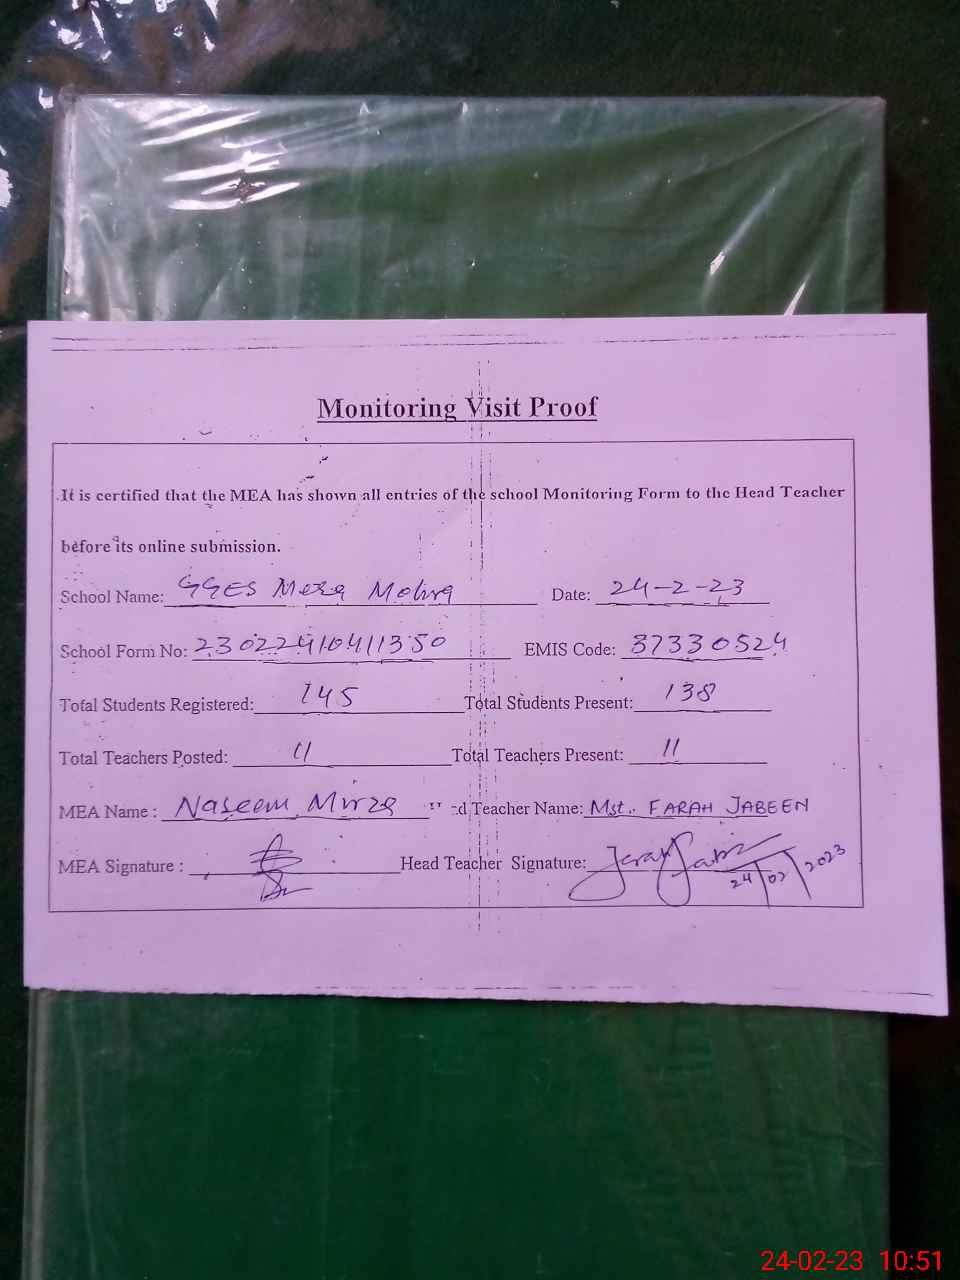 Monitoring Visit Proof
It is certified that the MEA has shown all entries of the school Monitoring Form to the Head Teacher
before its online submission.
School Name: GGES Mera Mohra Date: 24-2-23
School Form No: 23022410411350 EMIS Code: 37330524
Total Students Registered: 145 Total Students Present: 138
Total Teachers Posted: 11 Total Teachers Present: 11
MEA Name : Naseem Mirza Teacher Name: Mst. FARAH JABEEN
MEA Signature : Head Teacher Signature:
24/02/2023
24-02-23 10:51